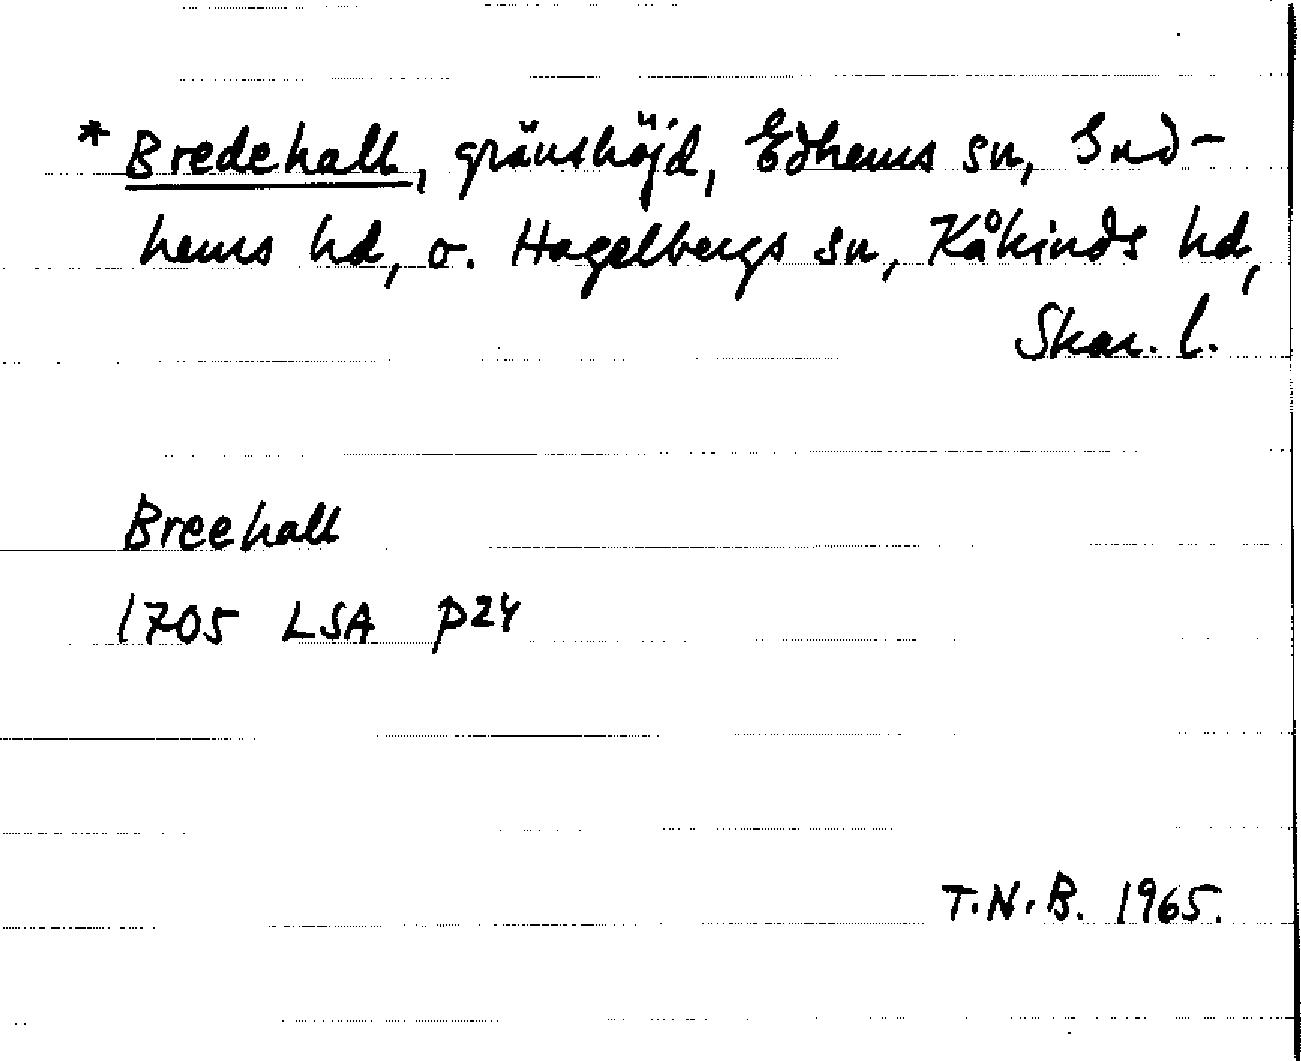 * Bredehall, gränshöjd, Edhems sn, Gud-
hems hd, o. Hagelbergs sn, Kåkinds hd,
Skar. l.
Breehall
1705 LSA P24
T.N.B. 1965.